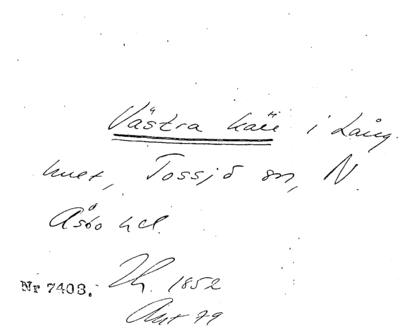 Västra kärr i Lång
huet, Tossjö sn, N.
Åsbo hd.
Nr 7403. Th. 1852
Ant 79